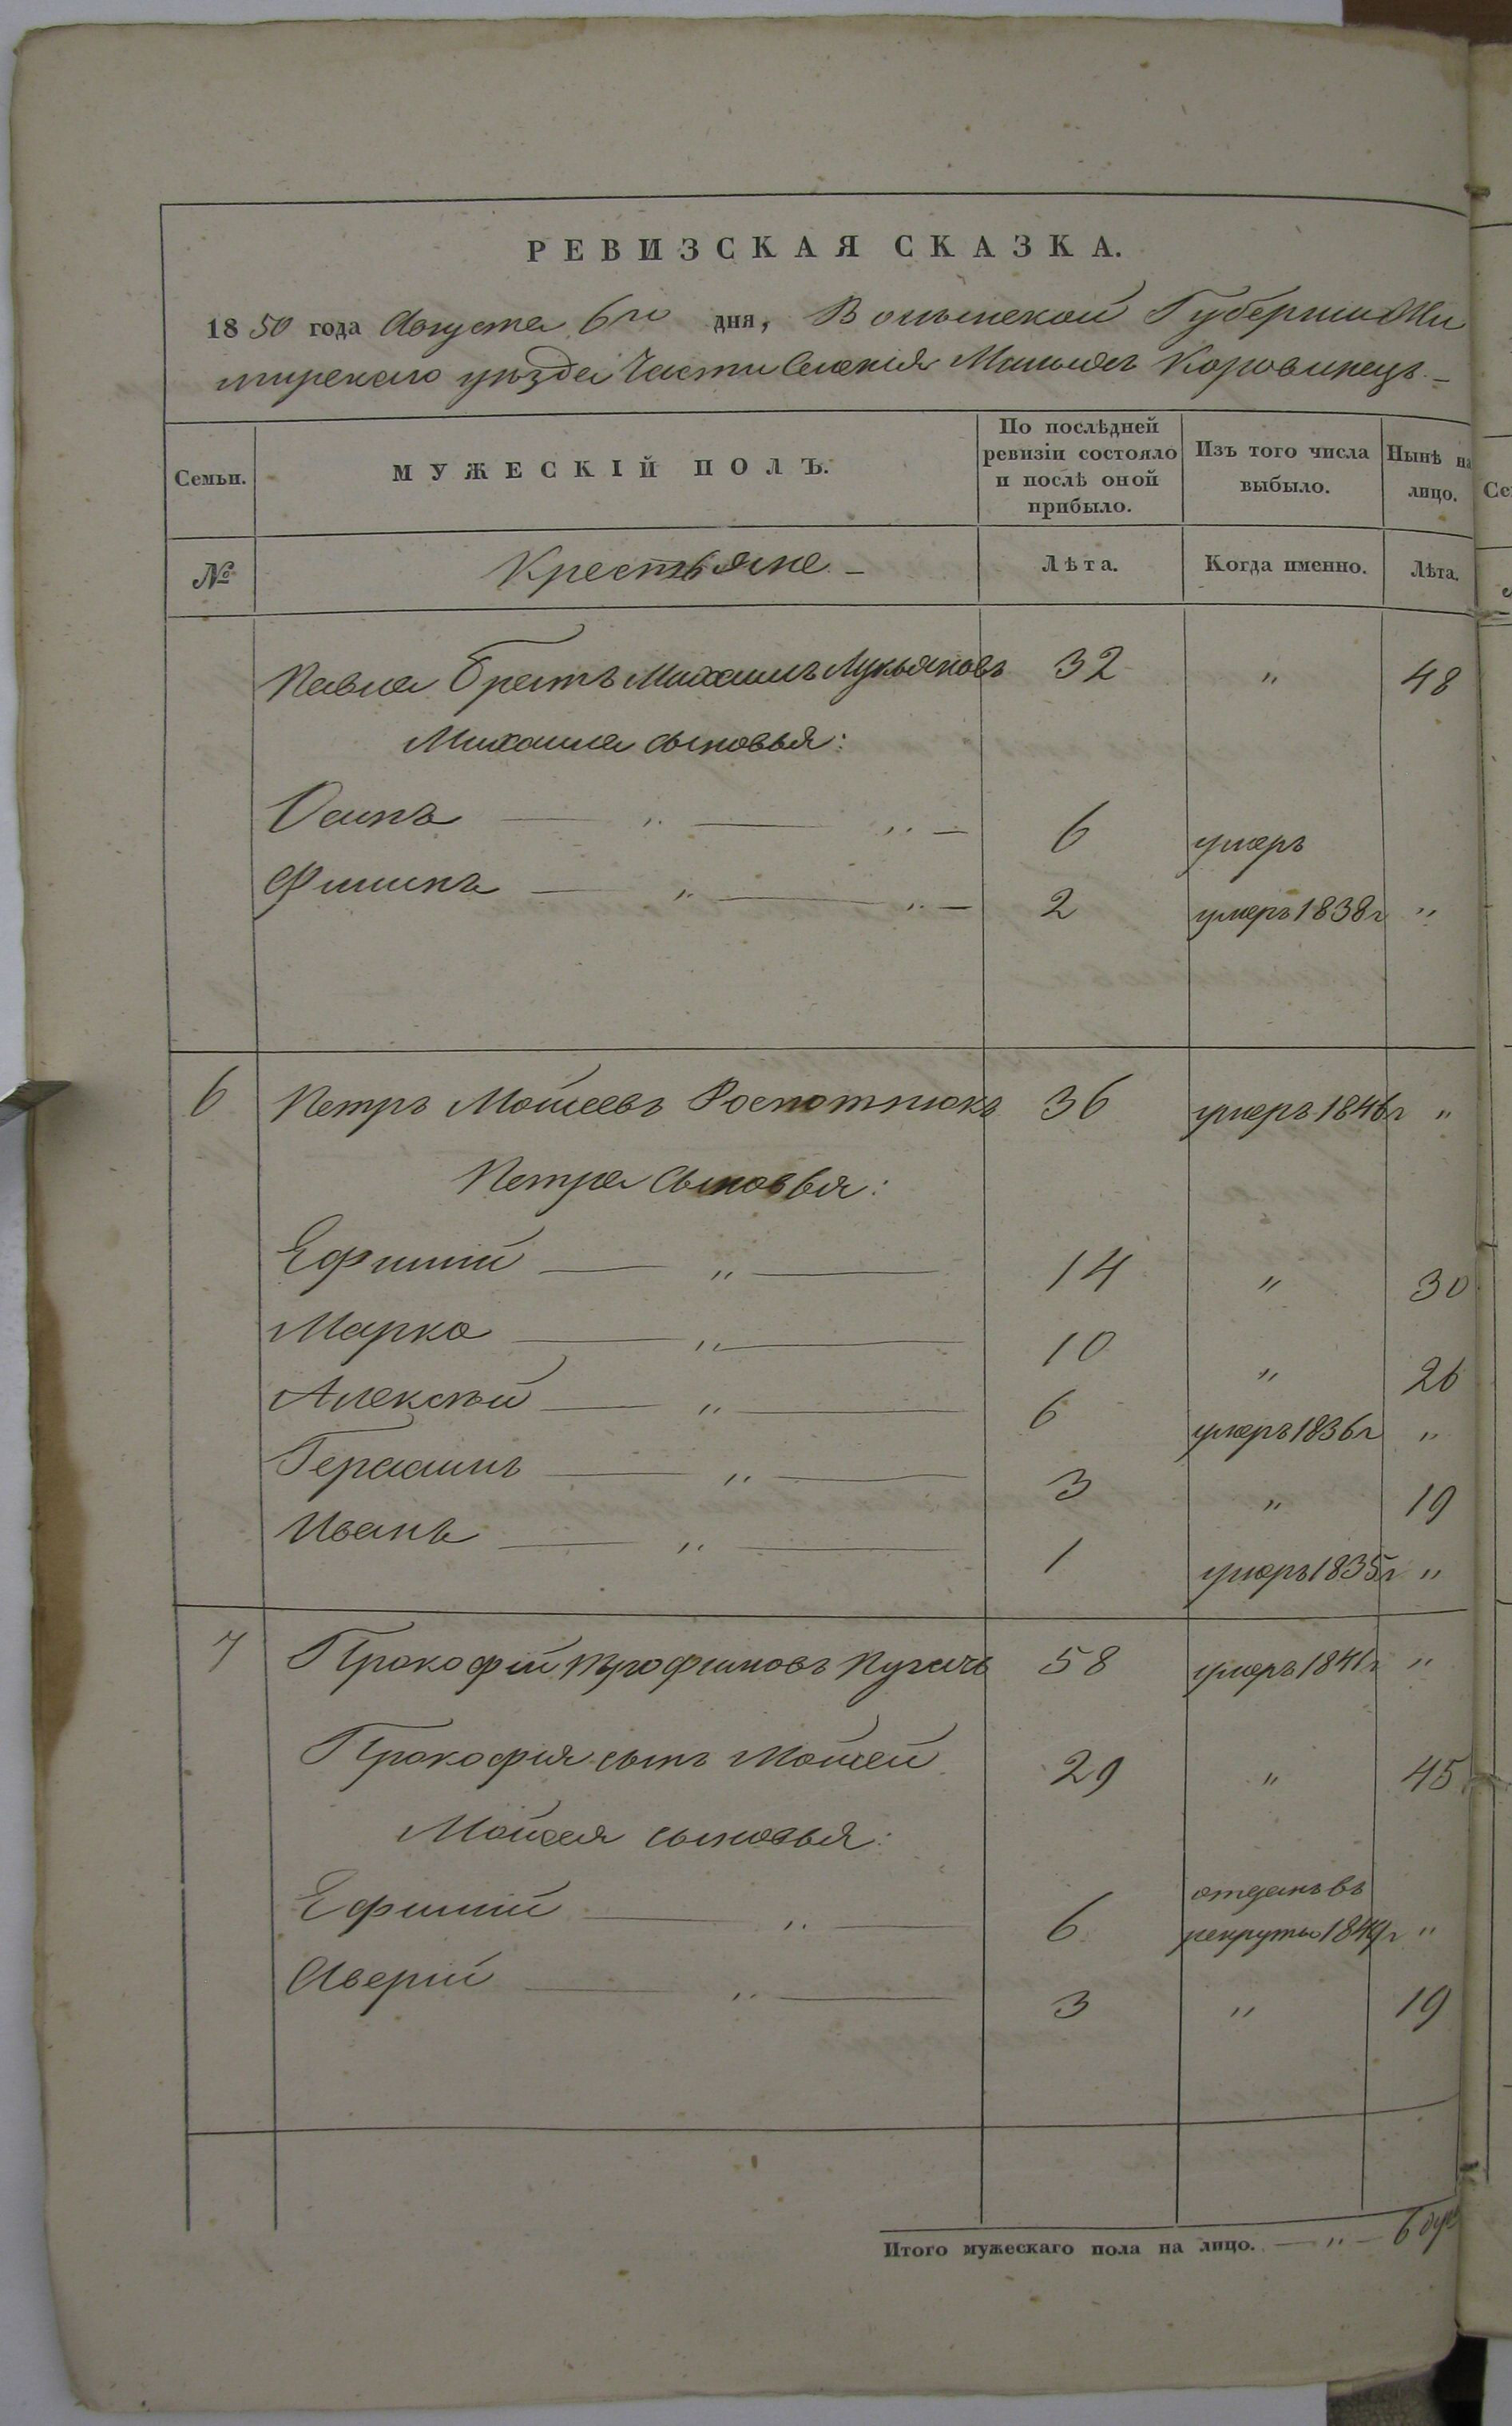 РЕВИЗСКАЯ СКАЗКА.
1850 года Августа 6го дня, Волынской Губерніи Жи
тирскаго уѣзда Части Селенія Малыхъ Коровинецъ. —
Семьи. МУЖЕСКІЙ ПОЛЪ. По послѣдней ревизіи состояло и послѣ оной прибыло. Изъ того числа выбыло. Нынѣ на лицо.
№ Крестьяне. — Лѣта. Когда именно. Лѣта.
Павла братъ Михаилъ Лукьяновъ 32 „ 48
Михаила сыновья:
Осипъ — „ — „ — 6 умеръ
Филипъ — „ — „ — 2 умеръ 1838г „
6 Петръ Мойсеевъ Роспотнюкъ 36 умеръ 1846г „
Петра сыновья:
Ефимій — „ — 14 „ 30
Марко — „ — 10 „ 26
Алексѣй — „ — 6 умеръ 1836г „
Герасимъ — „ — 3 „ 19
Иванъ — „ — 1 умеръ 1835г „
7 Прокофій Трофимовъ Пугачъ 58 умеръ 1841г „
Прокофія сынъ Мойсей 29 „ 45
Мойсея сыновья:
Ефимій — „ — 6 отданъ въ
рекруты 1849г „
Аверій — „ — 3 „ 19
Итого мужескаго пола на лицо. — „ — 6 душ